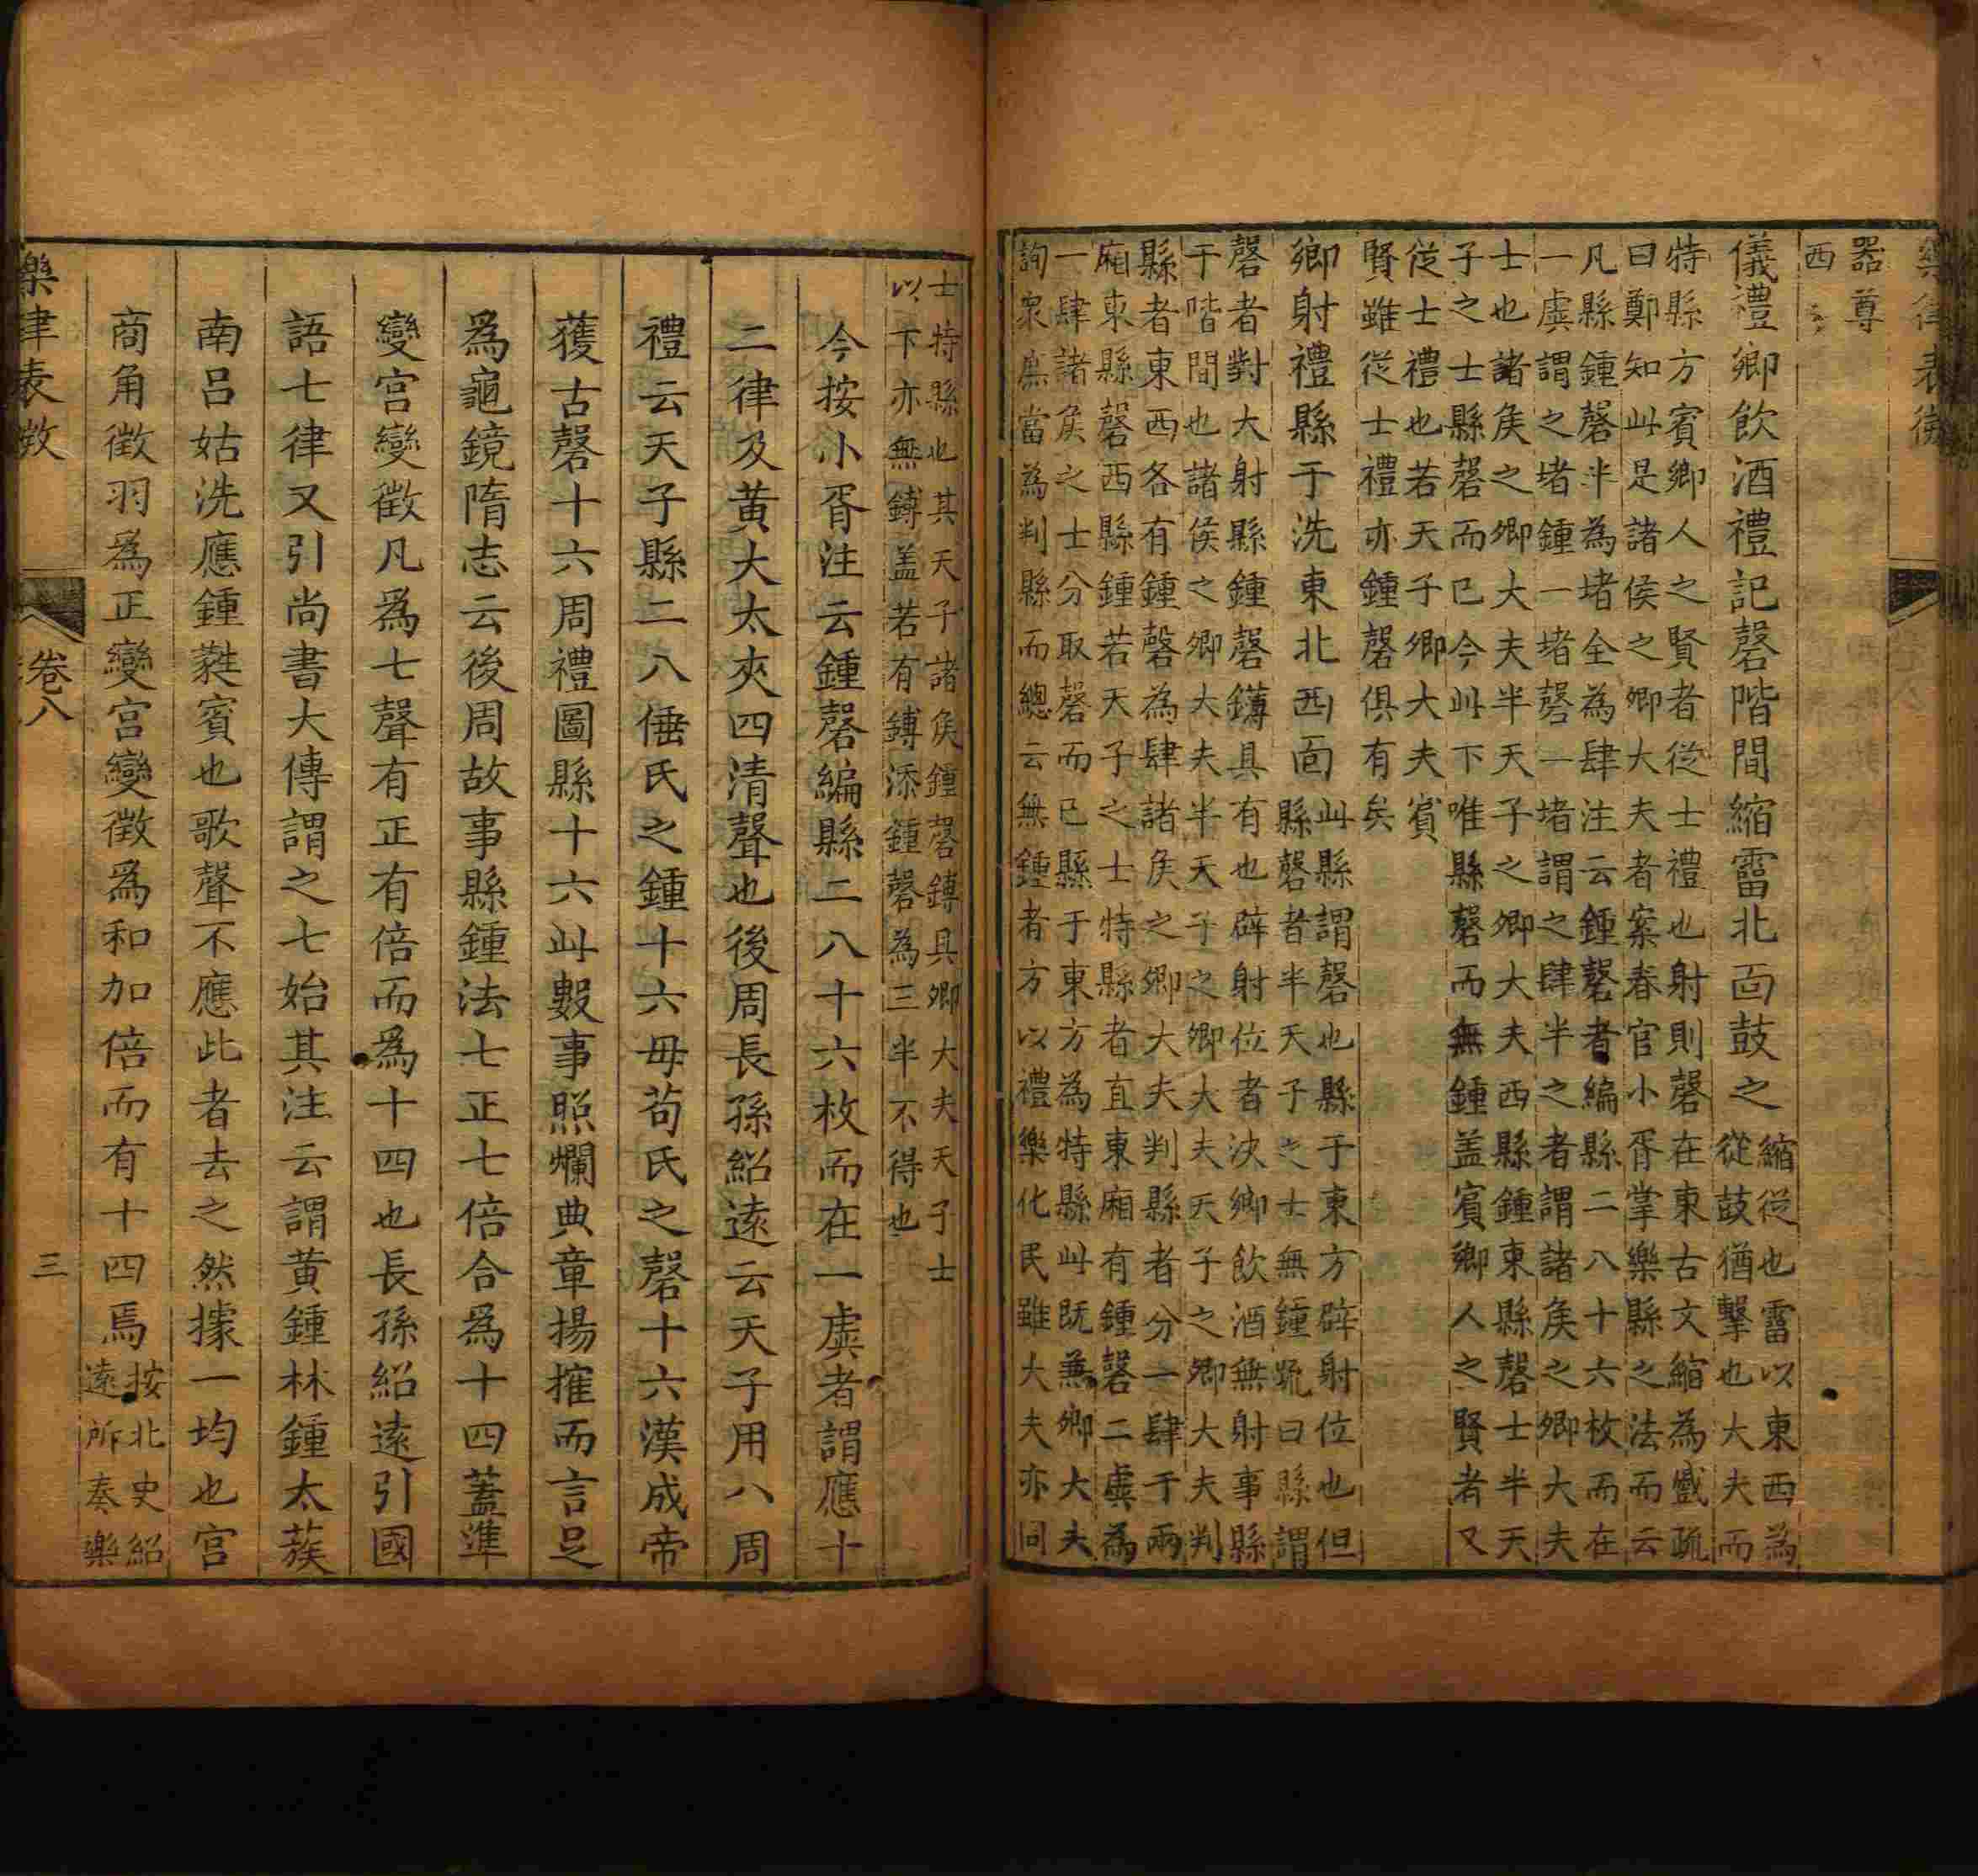 樂律表微
器尊
西
儀禮鄉飲酒禮記磬階間縮霤北面鼓之
縮從也霤以東西為
從鼓猶擊也大夫而
特縣方賓鄉人之賢者從士禮也射則磬在東古文縮為蹙疏
曰鄭知此是諸侯之卿大夫者案春官小胥掌樂縣之法而云
凡縣鍾磬半為堵全為肆注云鍾磬者編縣二八十六枚而在
一虡謂之堵鍾一堵磬一堵謂之肆半之者謂諸侯之卿大夫
士也諸侯之卿大夫半天子之卿大夫西縣鍾東縣磬士半天
子之士縣磬而已今此下唯縣磬而無鍾蓋賓鄉人之賢者又
從士禮也若天子卿大夫賓
賢雖從士禮亦鍾磬俱有矣
鄉射禮縣于洗東北西面
此縣謂磬也縣于東方辟射位也但
縣磬者半天子之士無鍾疏曰縣謂
磬者對大射縣鍾磬鑮具有也辟射位者決鄉飲酒無射事縣
于階間也諸侯之卿大夫半天子之卿大夫天子之卿大夫判
縣者東西各有鍾磬為肆諸侯之卿大夫判縣者分一肆于兩
廂東縣磬西縣鍾若天子之士特縣者直東廂有鍾磬二虡為
一肆諸侯之士分取磬而已縣于東方為特縣此既兼卿大夫
詢衆庶當為判縣而總云無鍾者方以禮樂化民雖大夫亦同
士特縣也其天子諸侯鍾磬鎛具卿大夫天子士
以下亦無鎛蓋若有鎛添鍾磬為三半不得也
今按小胥注云鍾磬編縣二八十六枚而在一虡者謂應十
二律及黄大太夾四清聲也後周長孫紹遠云天子用八周
禮云天子縣二八倕氏之鍾十六毋苟氏之磬十六漢成帝
獲古磬十六周禮圖縣十六此數事照爛典章揚搉而言足
為龜鏡隋志云後周故事縣鍾法七正七倍合為十四蓋準
變宮變徵凡為七聲有正有倍而為十四也長孫紹遠引國
語七律又引尚書大傳謂之七始其注云謂黄鍾林鍾太蔟
南呂姑洗應鍾蕤賓也歌聲不應此者去之然據一均也宮
商角徵羽為正變宮變徵為和加倍而有十四焉
按北史紹
遠所奏樂
樂律表微
卷八
三